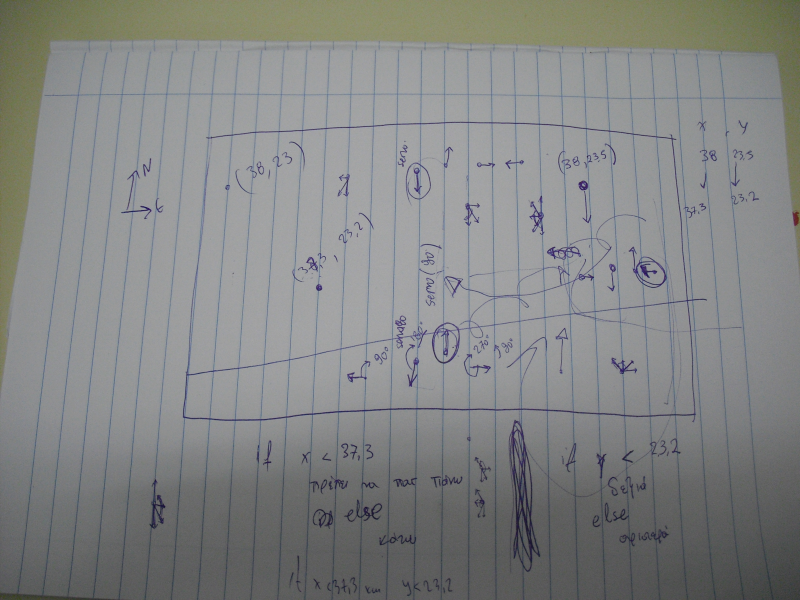 x , y
38 23,5
37,3 23,2
N
E
(38, 23)
(38, 23,5)
(37,3 , 23,2)
90°
270°
90°
if x < 37,3
πρέπει να πας πάνω
else
κάτω
if y < 23,2
δεξιά
else
αριστερά
if x < 37,3 και y < 23,2